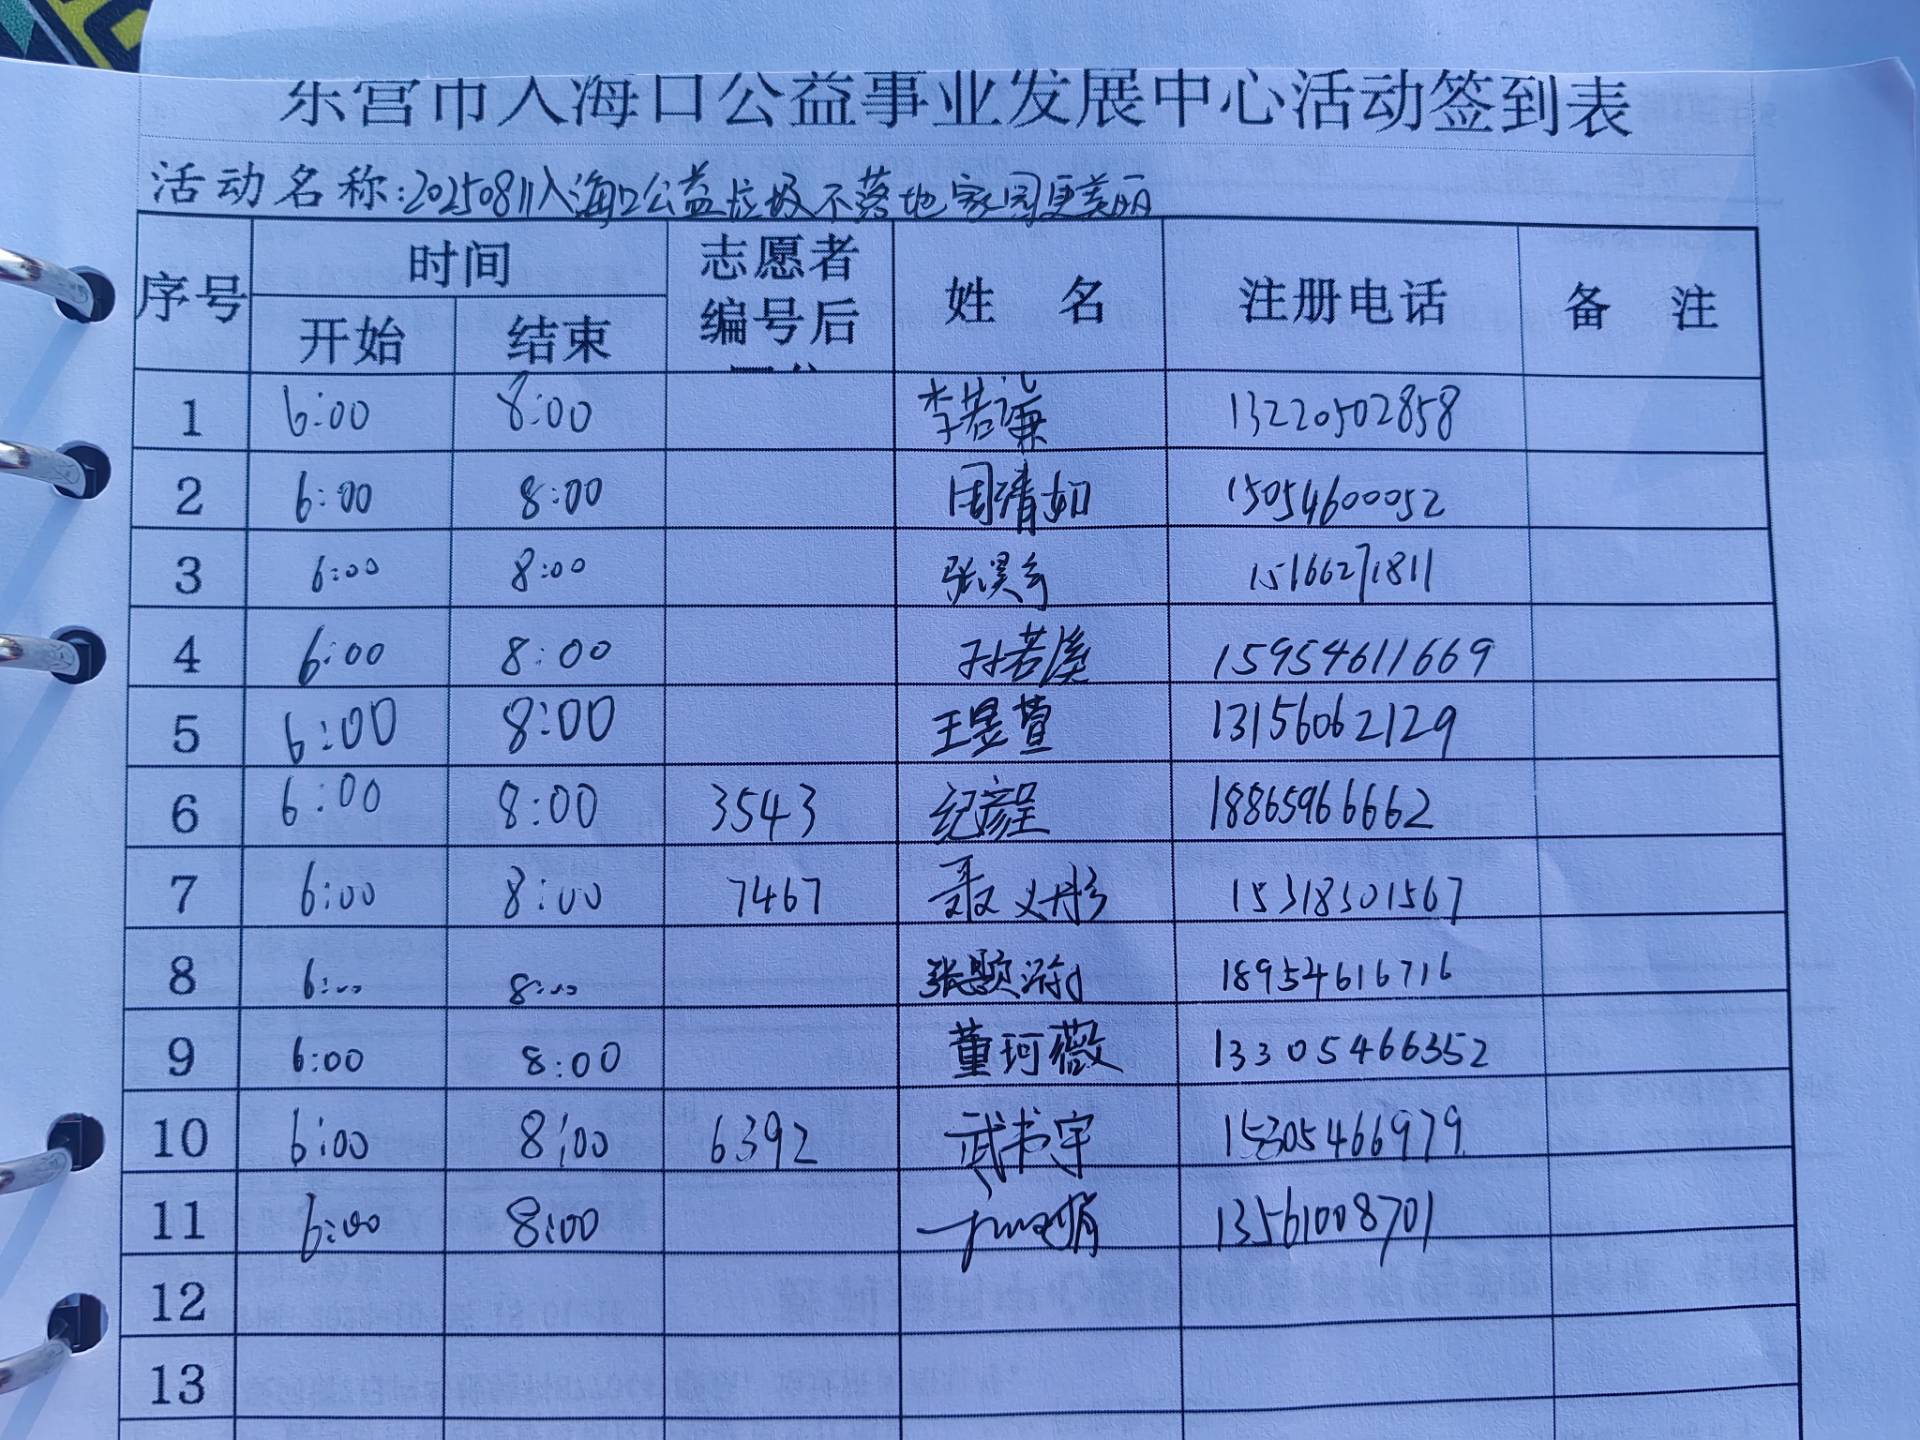 东营市入海口公益事业发展中心活动签到表
活动名称:20250811入海口公益垃圾不落地家园更美丽
序号 时间 志愿者编号后 姓 名 注册电话 备 注
开始 结束
1 6:00 8:00 李若谦 13220502858
2 6:00 8:00 周清如 15054600052
3 6:00 8:00 张淏 15166271811
4 6:00 8:00 孙若溪 15954611669
5 6:00 8:00 王昱萱 13156062129
6 6:00 8:00 3543 纪彦呈 18865966662
7 6:00 8:00 7467 聂义彤 15318301567
8 6:00 8:00 张颢瀚 18954616716
9 6:00 8:00 董珂薇 13305466352
10 6:00 8:00 6392 武书宇 15305466979
11 6:00 8:00 13561008701
12
13